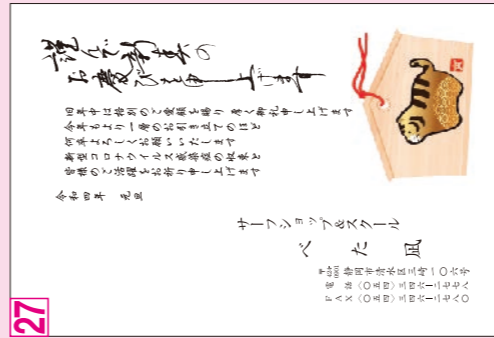 謹んで新年の
お慶びを申し上げます
旧年中は格別のご愛顧を賜り 厚く御礼申し上げます
今年もより一層のお引き立てのほど
何卒よろしくお願いいたします
新型コロナウイルス感染症の収束と
皆様のご活躍をお祈り申し上げます
令和四年 元旦
サーフショップ&スクール
べた凪
静岡市清水区三崎一〇六号
電話〈〇五四〉三四六一二七七八
FAX〈〇五四〉三四六一二七八〇
27